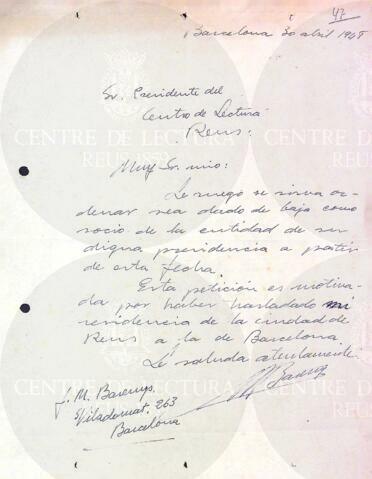 47
Barcelona 30 abril 1948
Sr. Presidente del
Centro de Lectura
Reus:
Muy Sr. mio:
Le ruego se sirva or-
denar sea dado de baja como
socio de la entidad de su
digna presidencia a partir
de esta fecha.
Esta petición es motiva-
da por haber trasladado mi
residencia de la ciudad de
Reus a la de Barcelona.
Le saluda atentamente
J. M. Barenys.
Viladomat, 263
Barcelona
CENTRE DE LECTURA
REUS 1859